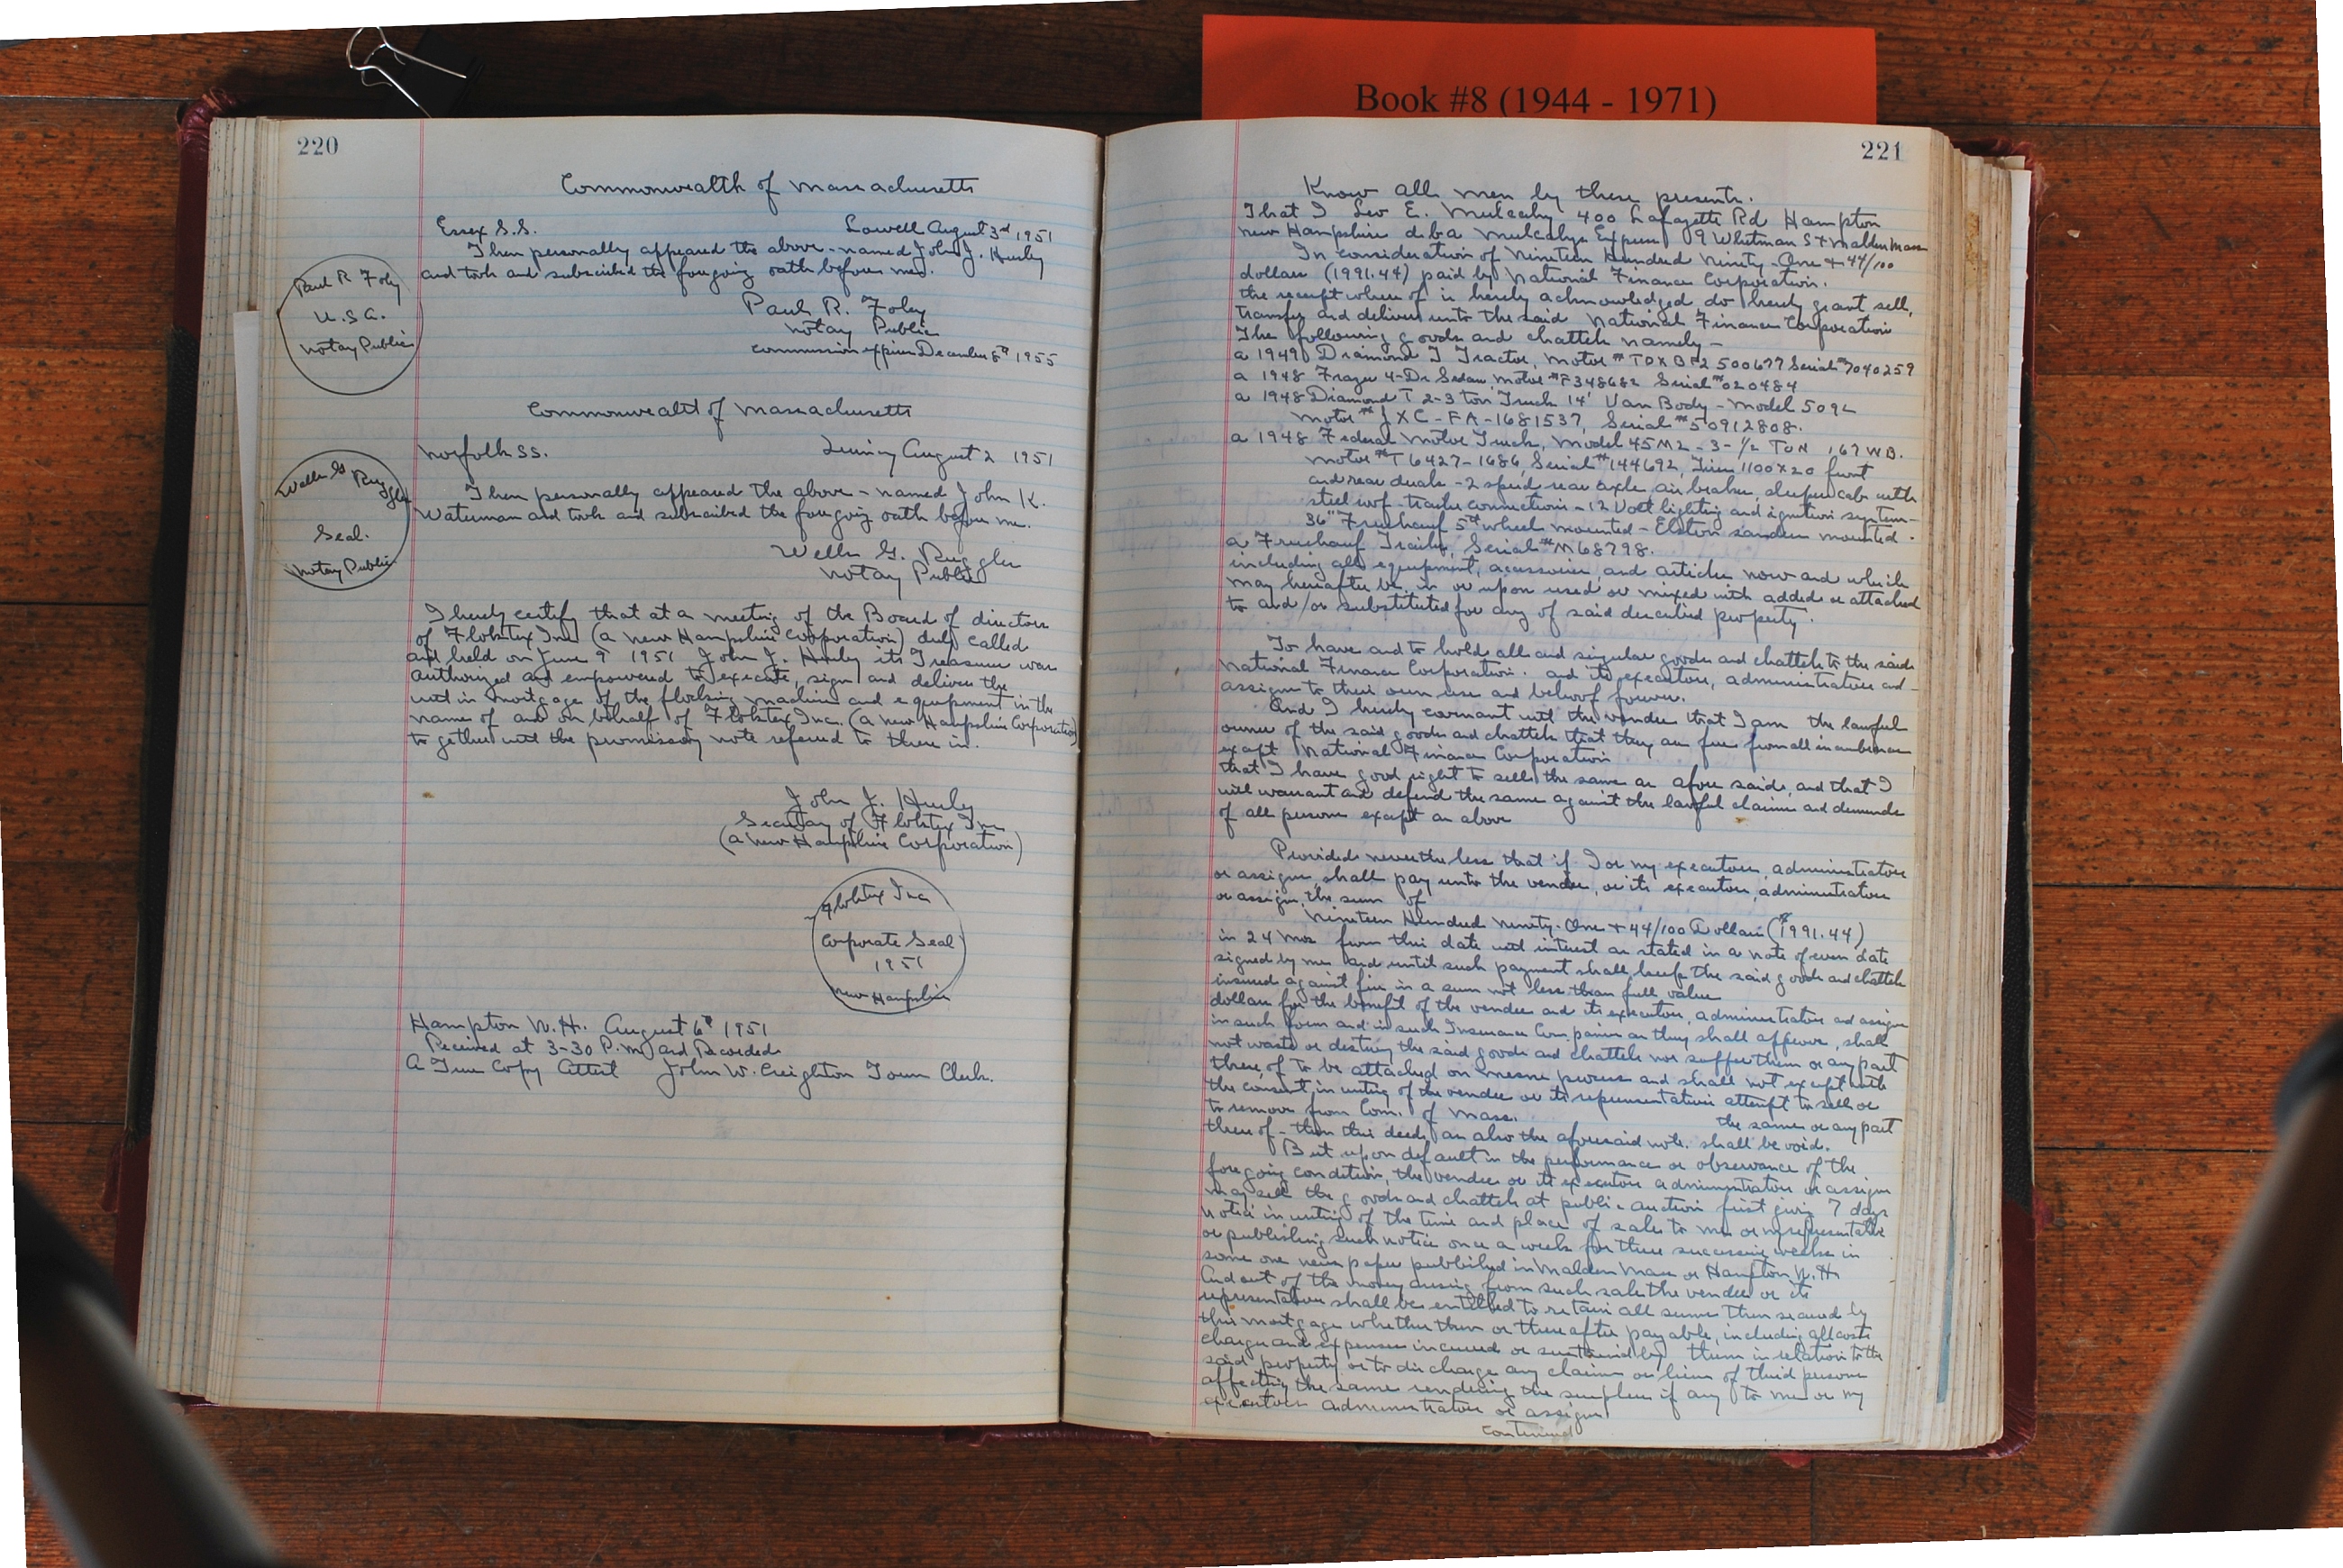 Book #8 (1944 - 1971)
220
Commonwealth of Massachusetts
Essex S.S. Lowell August 3rd 1951
Then personally appeared the above-named John J. Hurley
and took and subscribed the foregoing oath before me.
Paul R. Foley
Notary Public
Commission expires December 8th 1955
Paul R Foley
U.S.A.
Notary Public
Commonwealth of Massachusetts
Norfolk SS. August 2 1951
Then personally appeared the above-named John K.
Waterman and took and subscribed the foregoing oath before me.
G. Ruggles
Notary Public
G Ruggles
Seal.
Notary Public
I hereby certify that at a meeting of the Board of directors
of Floktex Inc (a New Hampshire Corporation) duly called
and held on June 9 1951 John J. Hurley its Treasurer was
authorized and empowered to execute, sign and deliver the
within mortgage of the flocking machine and equipment in the
name of and on behalf of Floktex Inc. (a New Hampshire Corporation)
together with the promissory note referred to there in.
John J. Hurley
Secretary of Floktex Inc
(a New Hampshire Corporation)
Floktex Inc
Corporate Seal
1951
New Hampshire
Hampton N.H. August 6th 1951
Received at 3-30 P.m and Recorded
A True Copy Attest John W. Creighton Town Clerk.
221
Know all men by these presents.
That I Leo E. Mulcahy 400 Lafayette Rd Hampton
New Hampshire d.b.a Mulcahys Express 9 Whitman St Malden Mass
In consideration of Nineteen Hundred Ninety-One + 44/100
dollars (1991.44) paid by National Finance Corporation.
the receipt where of is hereby acknowledged do hereby grant sell,
transfer and deliver unto the said National Finance Corporation
The following goods and chattels namely -
a 1949 Diamond T Tractor, Motor # TDXBF2500677 Serial #7040259
a 1948 Frazer 4-Dr Sedan, Motor #F348682 Serial #020484
a 1948 Diamond T 2-3 ton Truck 14' Van Body - Model 509L
Motor # JXC-FA-1681537, Serial #50912808.
a 1948 Federal Motor Truck, Model 45M2 - 3-1/2 TON, 167 WB.
Motor #T6427-1686, Serial #144692, Tires 1100X20 front
and rear duals - 2 speed rear axle, air brakes, sleeper cab with
steel roof - trailer connections - 12 Volt lighting and ignition system -
36" Fruehauf 5th wheel mounted - Elston sanders mounted.
a Fruehauf Trailer, Serial #M68798.
including all equipment, accessories, and articles now and which
may hereafter be in or upon used or mixed with added or attached
to and/or substituted for any of said described property.
To have and to hold all and singular goods and chattels to the said
National Finance Corporation. and its executors, administrators and
assigns to their own use and behoof forever.
And I hereby covenant with the vendee that I am the lawful
owner of the said goods and chattels that they are free from all incumbrances
except National Finance Corporation
that I have good right to sell the same as afore said, and that I
will warrant and defend the same against the lawful claims and demands
of all persons except as above
Provided nevertheless that if I or my executors, administrators
or assigns shall pay unto the vendee, or its executors, administrators
or assigns, the sum of
Nineteen Hundred Ninety-One + 44/100 Dollars ($1991.44)
in 24 Mos from this date with interest as stated in a note of even date
signed by me and until such payment shall keep the said goods and chattels
insured against fire in a sum not less than full value
dollars for the benefit of the vendee and its executors, administrators and assigns
in such form and in such Insurance Companies as they shall approve, shall
not waste or destroy the said goods and chattels nor suffer them or any part
there of to be attached on mesne process and shall not except with
the consent in writing of the vendee or its representatives attempt to sell or
to remove from Com. of Mass. the same or any part
there of - then this deed, as also the aforesaid note. shall be void.
But upon default in the performance or observance of the
foregoing condition, the vendee or its executors administrators or assigns
may sell the goods and chattels at public auction first giving 7 days
notice in writing of the time and place of sale to me or my representative
or publishing such notice once a week for three successive weeks in
some one news paper published in Malden Mass or Hampton N.H
And out of the money arising from such sale the vendee or its
representatives shall be entitled to retain all sums then secured by
this mortgage whether then or thereafter payable, including all costs
charges and expenses incurred or sustained by them in relation to the
said property or to discharge any claims or liens of third persons
affecting the same rendering the surplus if any to me or my
executors administrators or assigns.
Continued